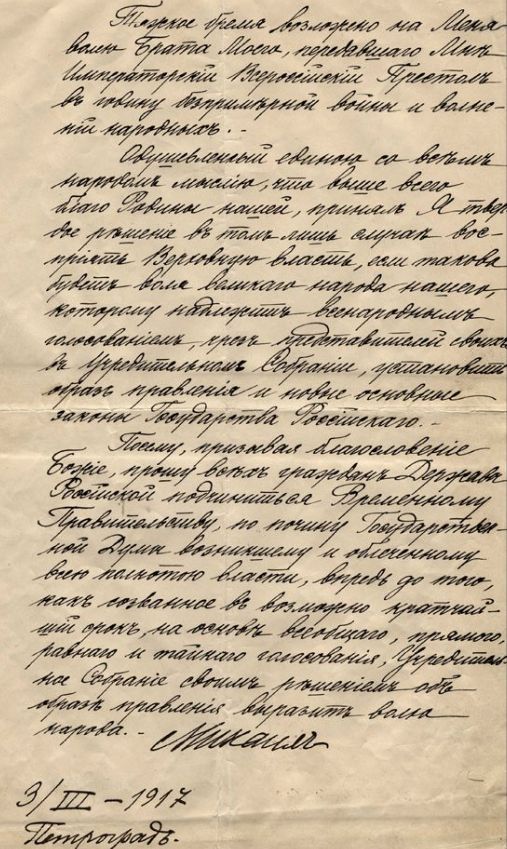 Тяжкое бремя возложено на Меня
волею Брата Моего, передавшаго Мнѣ
Императорскій Всероссійскій Престолъ
въ годину безпримѣрной войны и волне-
ній народныхъ. -
Одушевленный единою со всѣмъ
народомъ мыслію, что выше всего
благо Родины нашей, принялъ Я твер-
дое рѣшеніе въ томъ лишь случаѣ вос-
пріять Верховную власть, если такова
будетъ воля великаго народа нашего,
которому надлежитъ всенароднымъ
голосованіемъ, чрезъ представителей своихъ
въ Учредительномъ Собраніи, установить
образъ правленія и новые основные
законы Государства Россійскаго. -
Посему, призывая благословеніе
Божіе, прошу всѣхъ гражданъ Державы
Россійской подчиниться Временному
Правительству, по почину Государствен-
ной Думы возникшему и облеченному
всею полнотою власти, впредь до того,
какъ созванное въ возможно кратчай-
шій срокъ, на основѣ всеобщаго, прямого,
равнаго и тайнаго голосованія, Учредитель-
ное Собраніе своимъ рѣшеніемъ объ
образѣ правленія выразитъ волю
народа. - Михаилъ
3/III - 1917
Петроградъ.